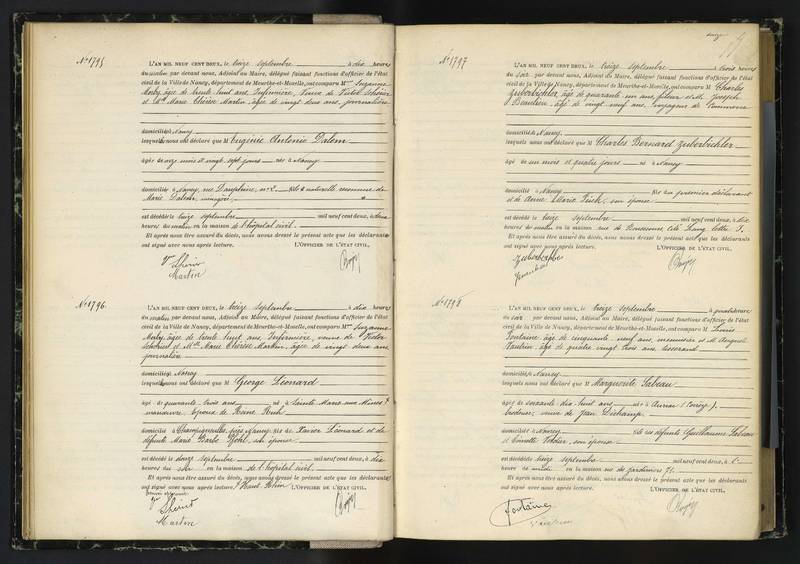 No 1795
L'AN MIL NEUF CENT DEUX, le treize septembre à dix heures
du matin par devant nous, Adjoint au Maire, délégué faisant fonctions d'officier de l'état
civil de la Ville de Nancy, département de Meurthe-et-Moselle, ont comparu Mme Suzanne
âgée de trente huit ans, Infirmière, Veuve de Victor
et Mlle Marie Thérèse Martin, âgée de vingt deux ans, journalière
domiciliés à Nancy
lesquels nous ont déclaré que M Eugénie Antonie Dalem
âgée de onze mois et vingt sept jours née à Nancy
domiciliée à Nancy, rue Dauphine, no 2 fille naturelle reconnue de
Marie Dalem, ménagère
est décédée le treize septembre mil neuf cent deux, à
heures du matin en la maison de l'hôpital civil.
Et après nous être assuré du décès, nous avons dressé le présent acte que les déclarants
ont signé avec nous après lecture. L'OFFICIER DE L'ÉTAT CIVIL,
Vve
Martin
No 1796
L'AN MIL NEUF CENT DEUX, le treize septembre à dix heures
du matin par devant nous, Adjoint au Maire, délégué faisant fonctions d'officier de l'état
civil de la Ville de Nancy, département de Meurthe-et-Moselle, ont comparu Mme Suzanne
âgée de trente huit ans, Infirmière, veuve de Victor
et Mlle Marie Thérèse Martin, âgée de vingt deux ans
journalière
domiciliés à Nancy
lesquels nous ont déclaré que M George Léonard
âgé de quarante trois ans né à Sainte Marie aux Mines
manœuvre, époux de
domicilié à Champigneulles, près Nancy fils de Xavier Léonard et de
défunte Marie Barbe son épouse
est décédé le douze septembre mil neuf cent deux, à dix
heures du soir en la maison de l'hôpital civil.
Et après nous être assuré du décès, nous avons dressé le présent acte que les déclarants
ont signé avec nous après lecture. Haut Rhin L'OFFICIER DE L'ÉTAT CIVIL,
Vve
Martin
No 1797
L'AN MIL NEUF CENT DEUX, le treize septembre à trois heures
du soir par devant nous, Adjoint au Maire, délégué faisant fonctions d'officier de l'état
civil de la Ville de Nancy, département de Meurthe-et-Moselle, ont comparu M Charles
Zuberbichler, âgé de quarante un ans, et M Joseph
Beaulieu, âgé de vingt neuf ans, voyageur de commerce
domiciliés à Nancy
lesquels nous ont déclaré que M Charles Bernard Zuberbichler
âgé de un mois et quatre jours né à Nancy
domicilié à Nancy fils du premier déclarant
et de Anne Marie son épouse
est décédé le treize septembre mil neuf cent deux, à dix
heures du matin en la maison rue de
Et après nous être assuré du décès, nous avons dressé le présent acte que les déclarants
ont signé avec nous après lecture. L'OFFICIER DE L'ÉTAT CIVIL,
No 1798
L'AN MIL NEUF CENT DEUX, le treize septembre à quatre heures
du soir par devant nous, Adjoint au Maire, délégué faisant fonctions d'officier de l'état
civil de la Ville de Nancy, département de Meurthe-et-Moselle, ont comparu M Louis
Fontaine âgé de cinquante neuf ans, menuisier et M August
âgé de quatre vingt trois ans tisserand
domiciliés à Nancy
lesquels nous ont déclaré que M Marguerite Sabeau
âgée de soixante dix huit ans née à (Corrèze),
brodeuse, veuve de Jean
domiciliée à Nancy fille des défunts Guillaume Sabeau
et son épouse
est décédée le treize septembre mil neuf cent deux, à
heure de midi en la maison rue de Jardiniers 71
Et après nous être assuré du décès, nous avons dressé le présent acte que les déclarants
ont signé avec nous après lecture. L'OFFICIER DE L'ÉTAT CIVIL,
Fontaine